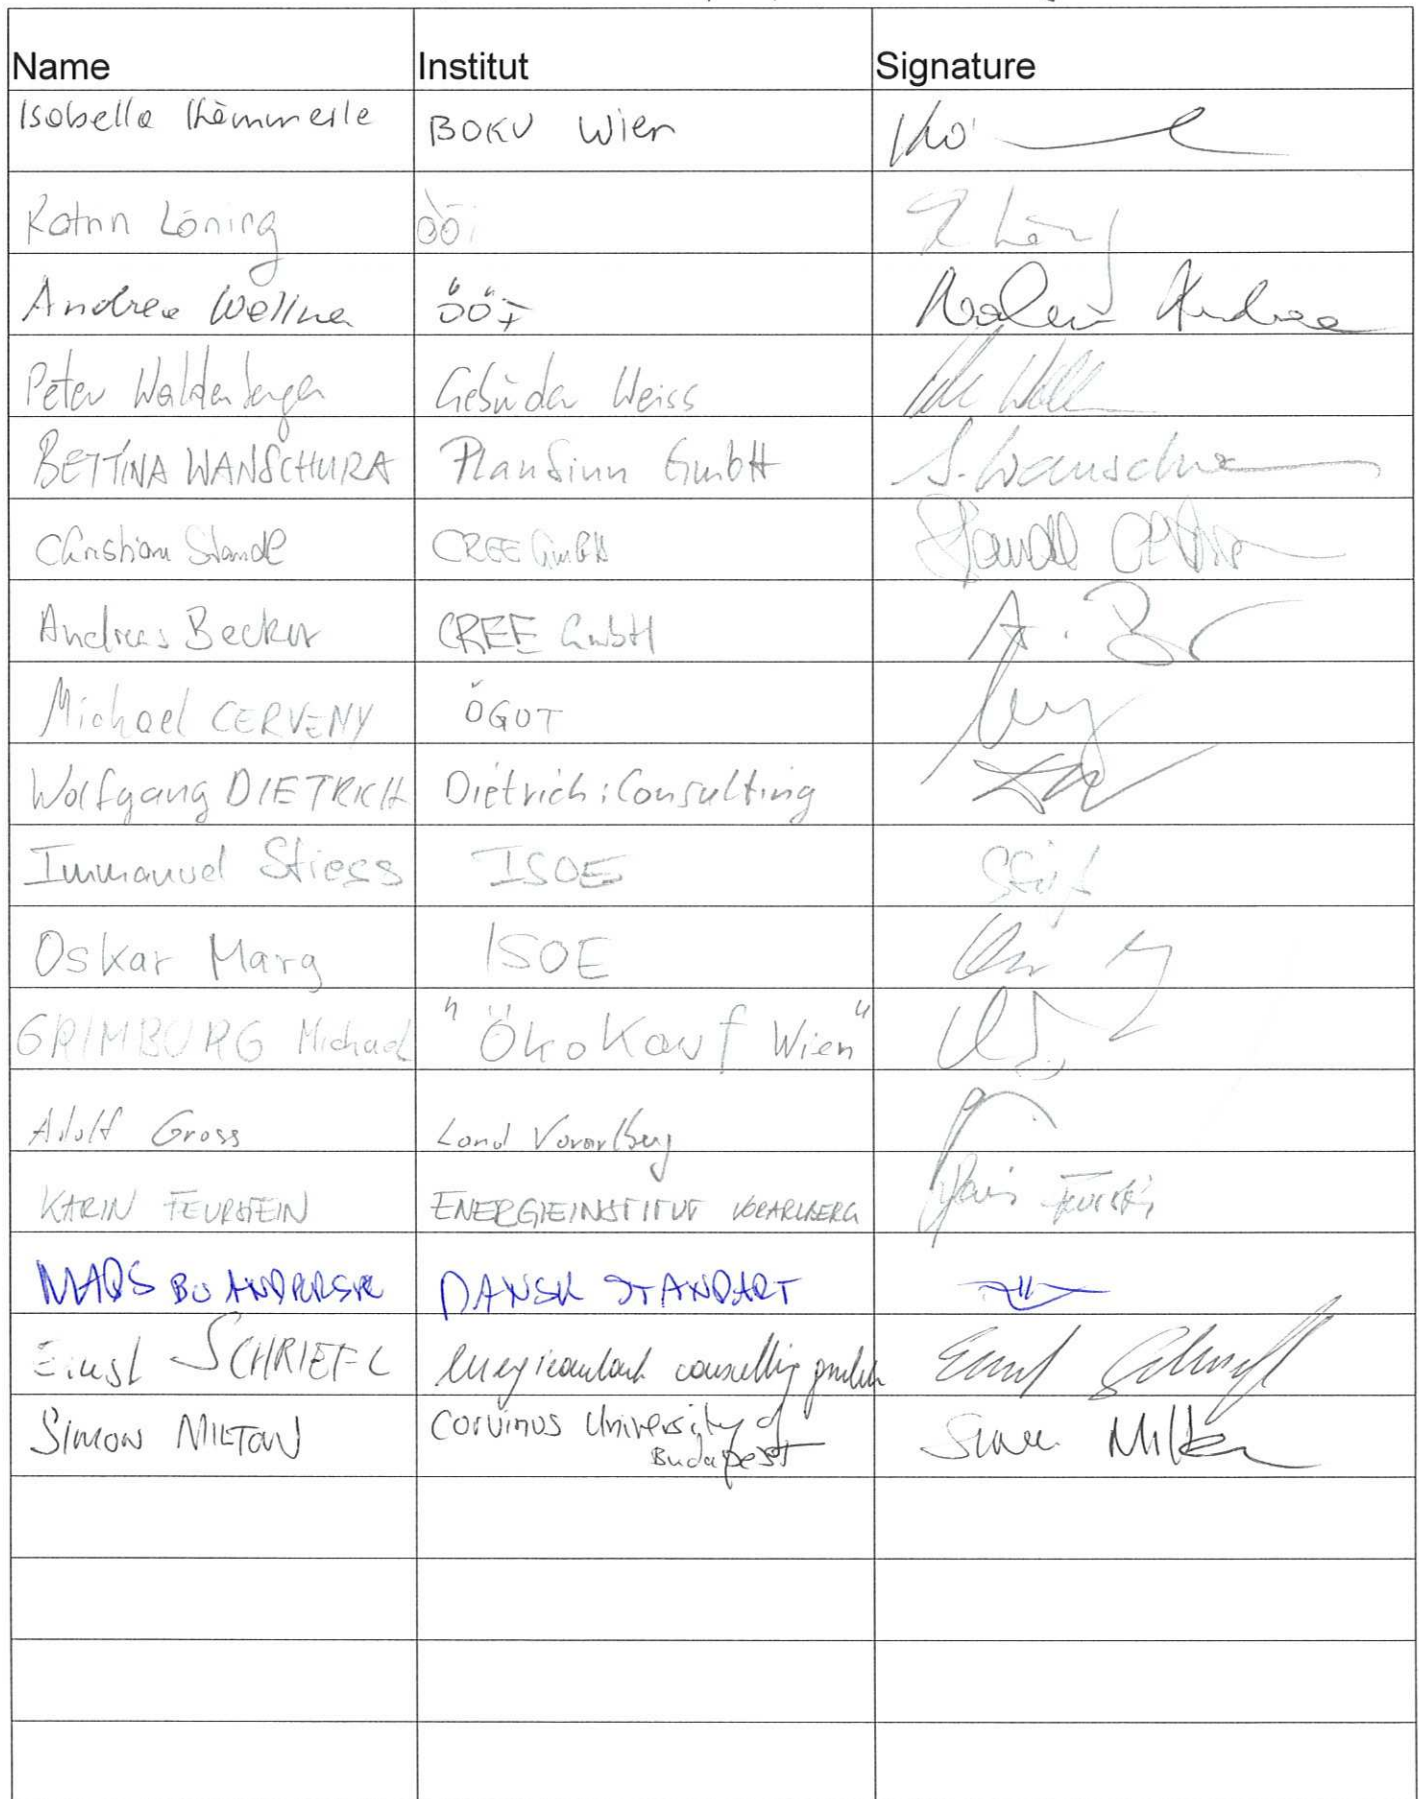 Name Institut Signature
Isabella Kämmerle BOKU Wien
Katrin Löning ÖÖI
Andrea Wellner ÖÖI
Peter Waldenberger Gebrüder Weiss
BETTINA WANSCHURA PlanSinn GmbH S. Wanschura
Christian Standl CREE GmbH Standl
Andreas Becker CREE GmbH A. B
Michael CERVENY ÖGUT
Wolfgang DIETRICH Dietrich:Consulting
Immanuel Stiess ISOE
Oskar Marg ISOE
GRIMBURG Michael "ÖkoKauf Wien"
Adolf Gross Land Vorarlberg
KARIN FEURSTEIN ENERGIEINSTITUT VORARLBERG
MADS BO ANDERSEN DANSK STANDART
Ernst SCHRIEFL consulting gmbh Ernst Schriefl
SIMON MILTON Corvinus University of Simon Milton
Budapest